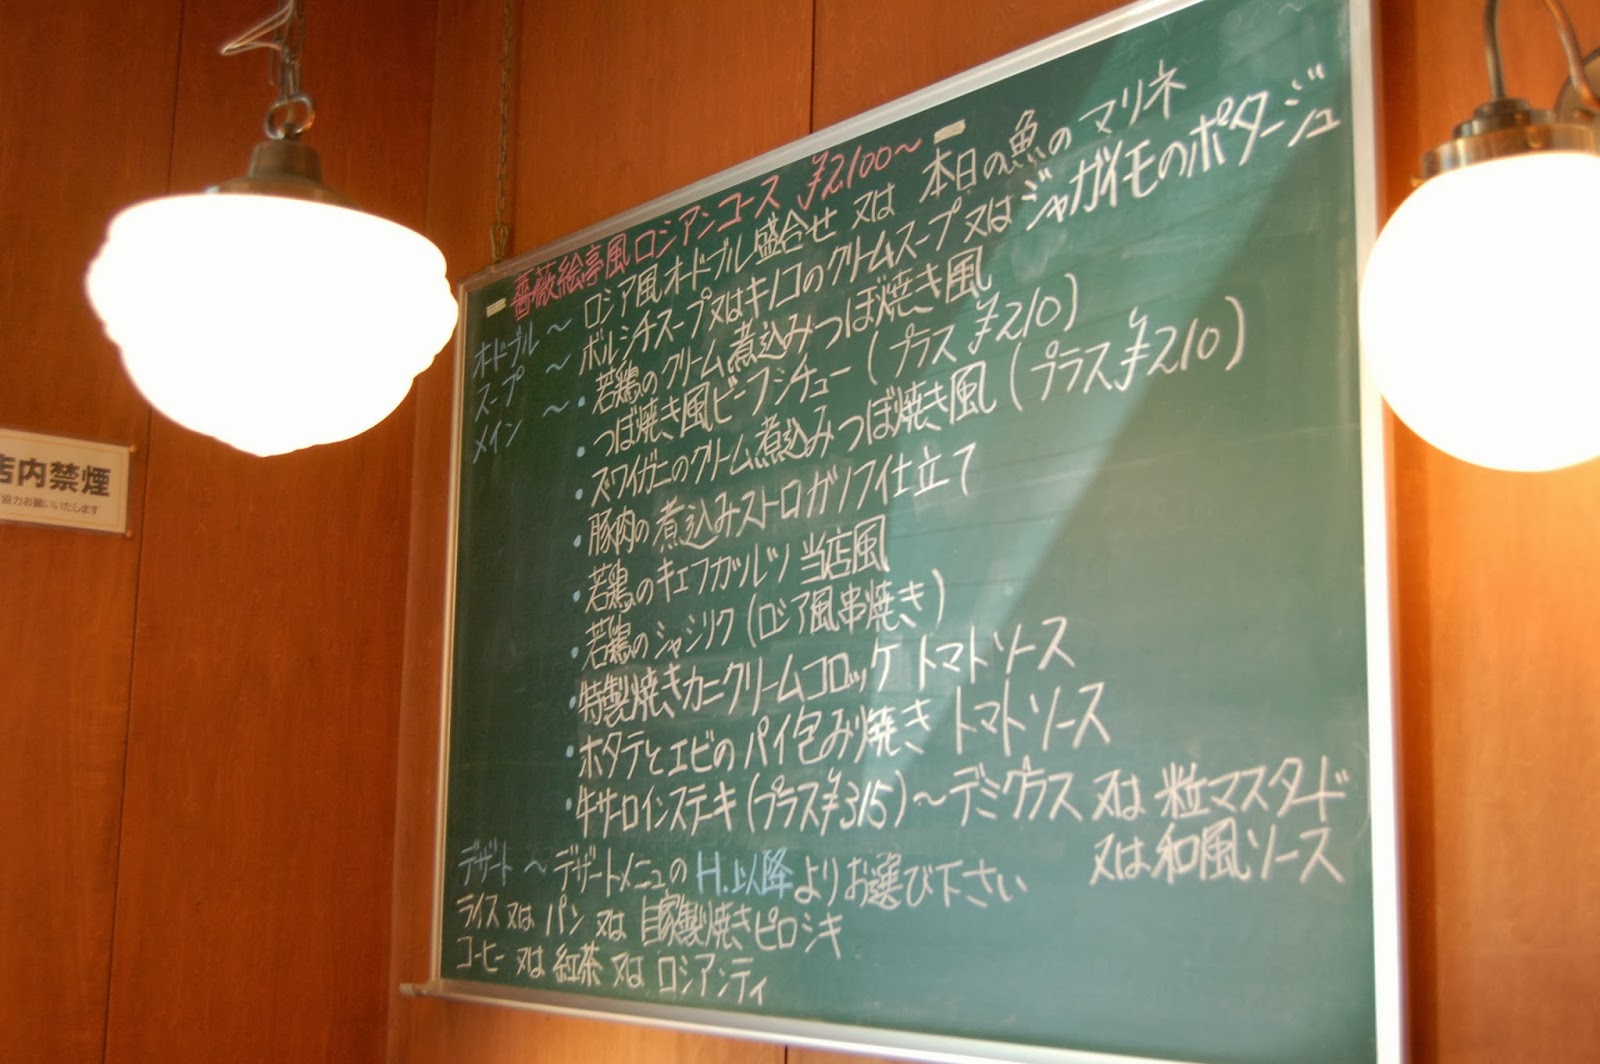 薔薇絵亭風ロシアンコース ¥2,100〜
オードブル 〜 ロシア風オードブル盛合せ 又は 本日の魚のマリネ
スープ 〜 ボルシチスープ又はキノコのクリームスープ又はジャガイモのポタージュ
メイン 〜・若鶏のクリーム煮込みつぼ焼き風
・つぼ焼き風ビーフシチュー(プラス¥210)
・ズワイガニのクリーム煮込みつぼ焼き風(プラス¥210)
・豚肉の煮込みストロガノフイ仕立て
・若鶏のキエフカツレツ 当店風
・若鶏のシャシリク(ロシア風串焼き)
・特製焼きカニクリームコロッケ トマトソース
・ホタテとエビのパイ包み焼き トマトソース
・牛サーロインステーキ(プラス¥315)〜デミグラス 又は 粒マスタード
又は和風ソース
デザート 〜 デザートメニューのH.以降よりお選び下さい
ライス 又は パン 又は 自家製焼きピロシキ
コーヒー 又は 紅茶 又は ロシアンティ
店内禁煙
ご協力お願いいたします